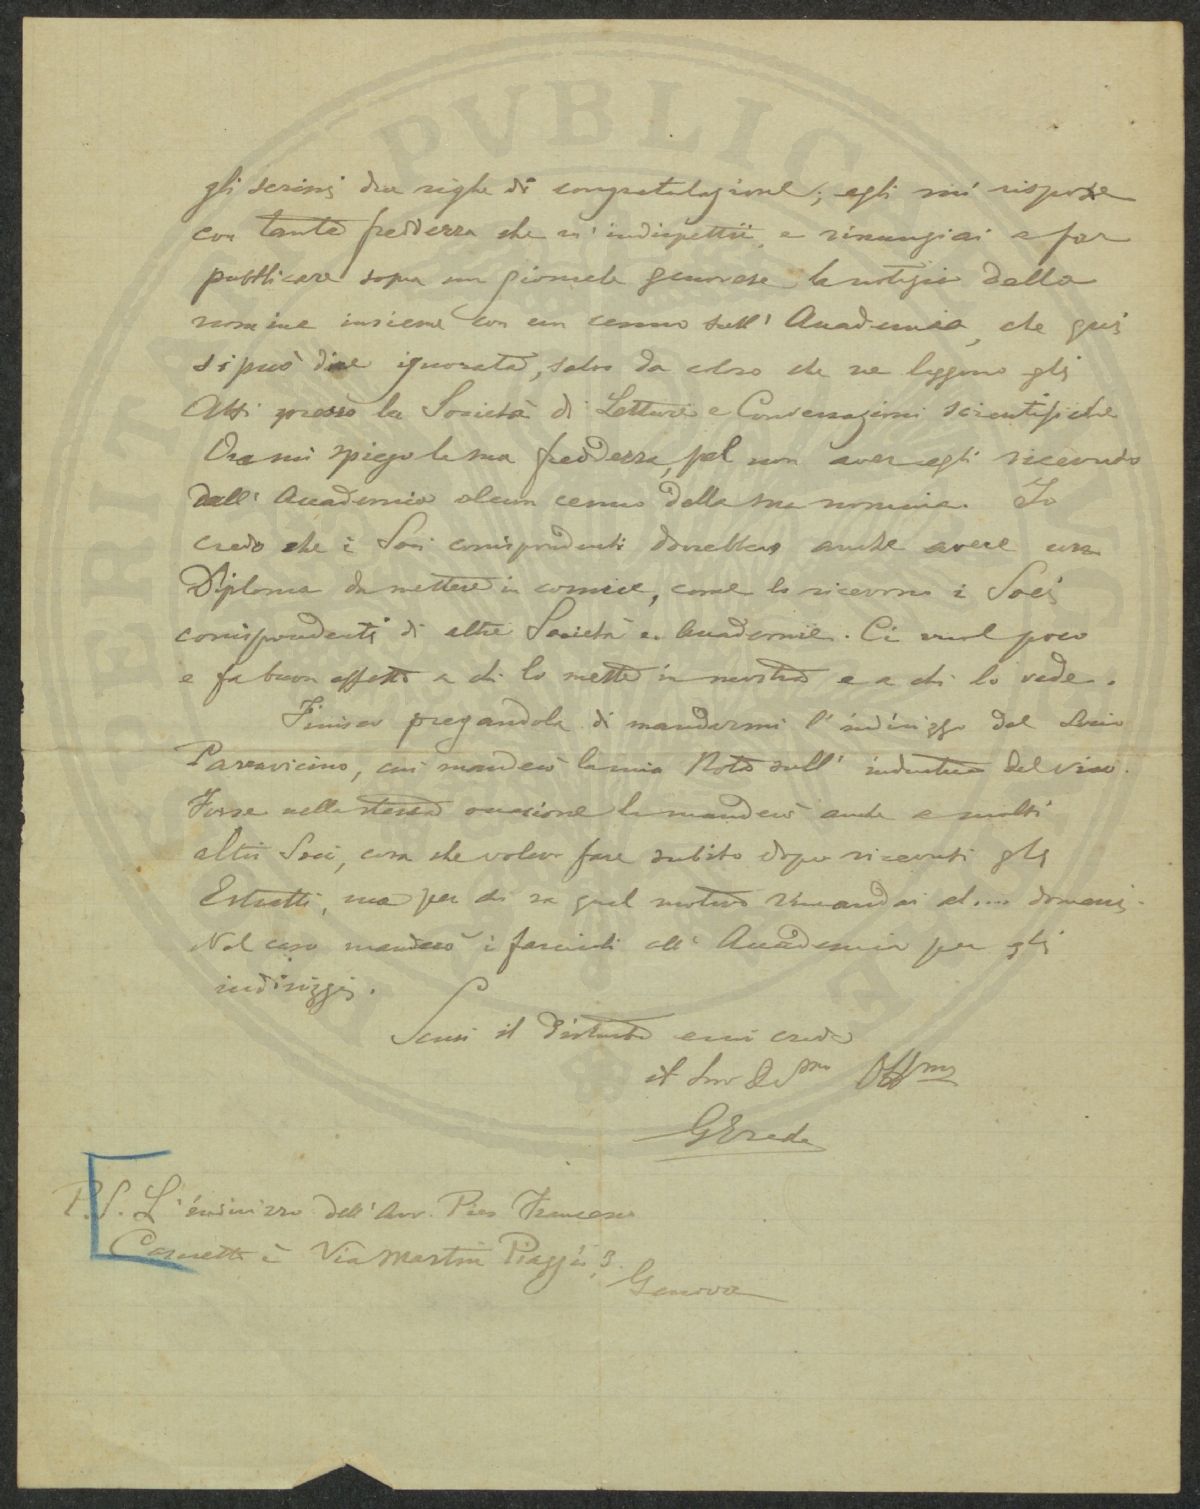 gli scrissi due righe di congratulazione; egli mi rispose
con tanta freddezza che m'indispettii, e rinunziai a far
pubblicare sopra un giornale genovese la notizia della
nomina insieme con un cenno sull'Accademia, che qui
si può dire ignorata, salvo da coloro che ne leggono gli
Atti presso la Società di Letture e Conversazioni scientifiche
Ora mi spiego la sua freddezza, pel non aver egli ricevuto
dall'Accademia alcun cenno della sua nomina. Io
credo che i Soci corrispondenti dovrebbero anche avere un
Diploma da mettere in cornice, come lo ricevono i Soci
corrispondenti di altre Società e Accademie. Ci vuol poco
e fa buon effetto a chi lo mette in mostra e a chi lo vede.
Finisco pregandola di mandarmi l'indirizzo del Socio
Paravicino, cui manderò la mia Nota sull'industria del vino.
Forse nella stessa occasione la manderò anche a molti
altri Soci, cosa che volevo fare subito dopo ricevuti gli
Estratti, ma per chi sa qual motivo rimandai al.... domani.
Nel caso manderò i fascicoli all'Accademia per gli
indirizzi.
Scusi il disturbo e mi creda
il Suo Dev.mo Obb.mo
G Erede
P.S. L'indirizzo dell'Avv. Pier Francesco
Casaretto è Via Martin Piaggio 3.
Genova